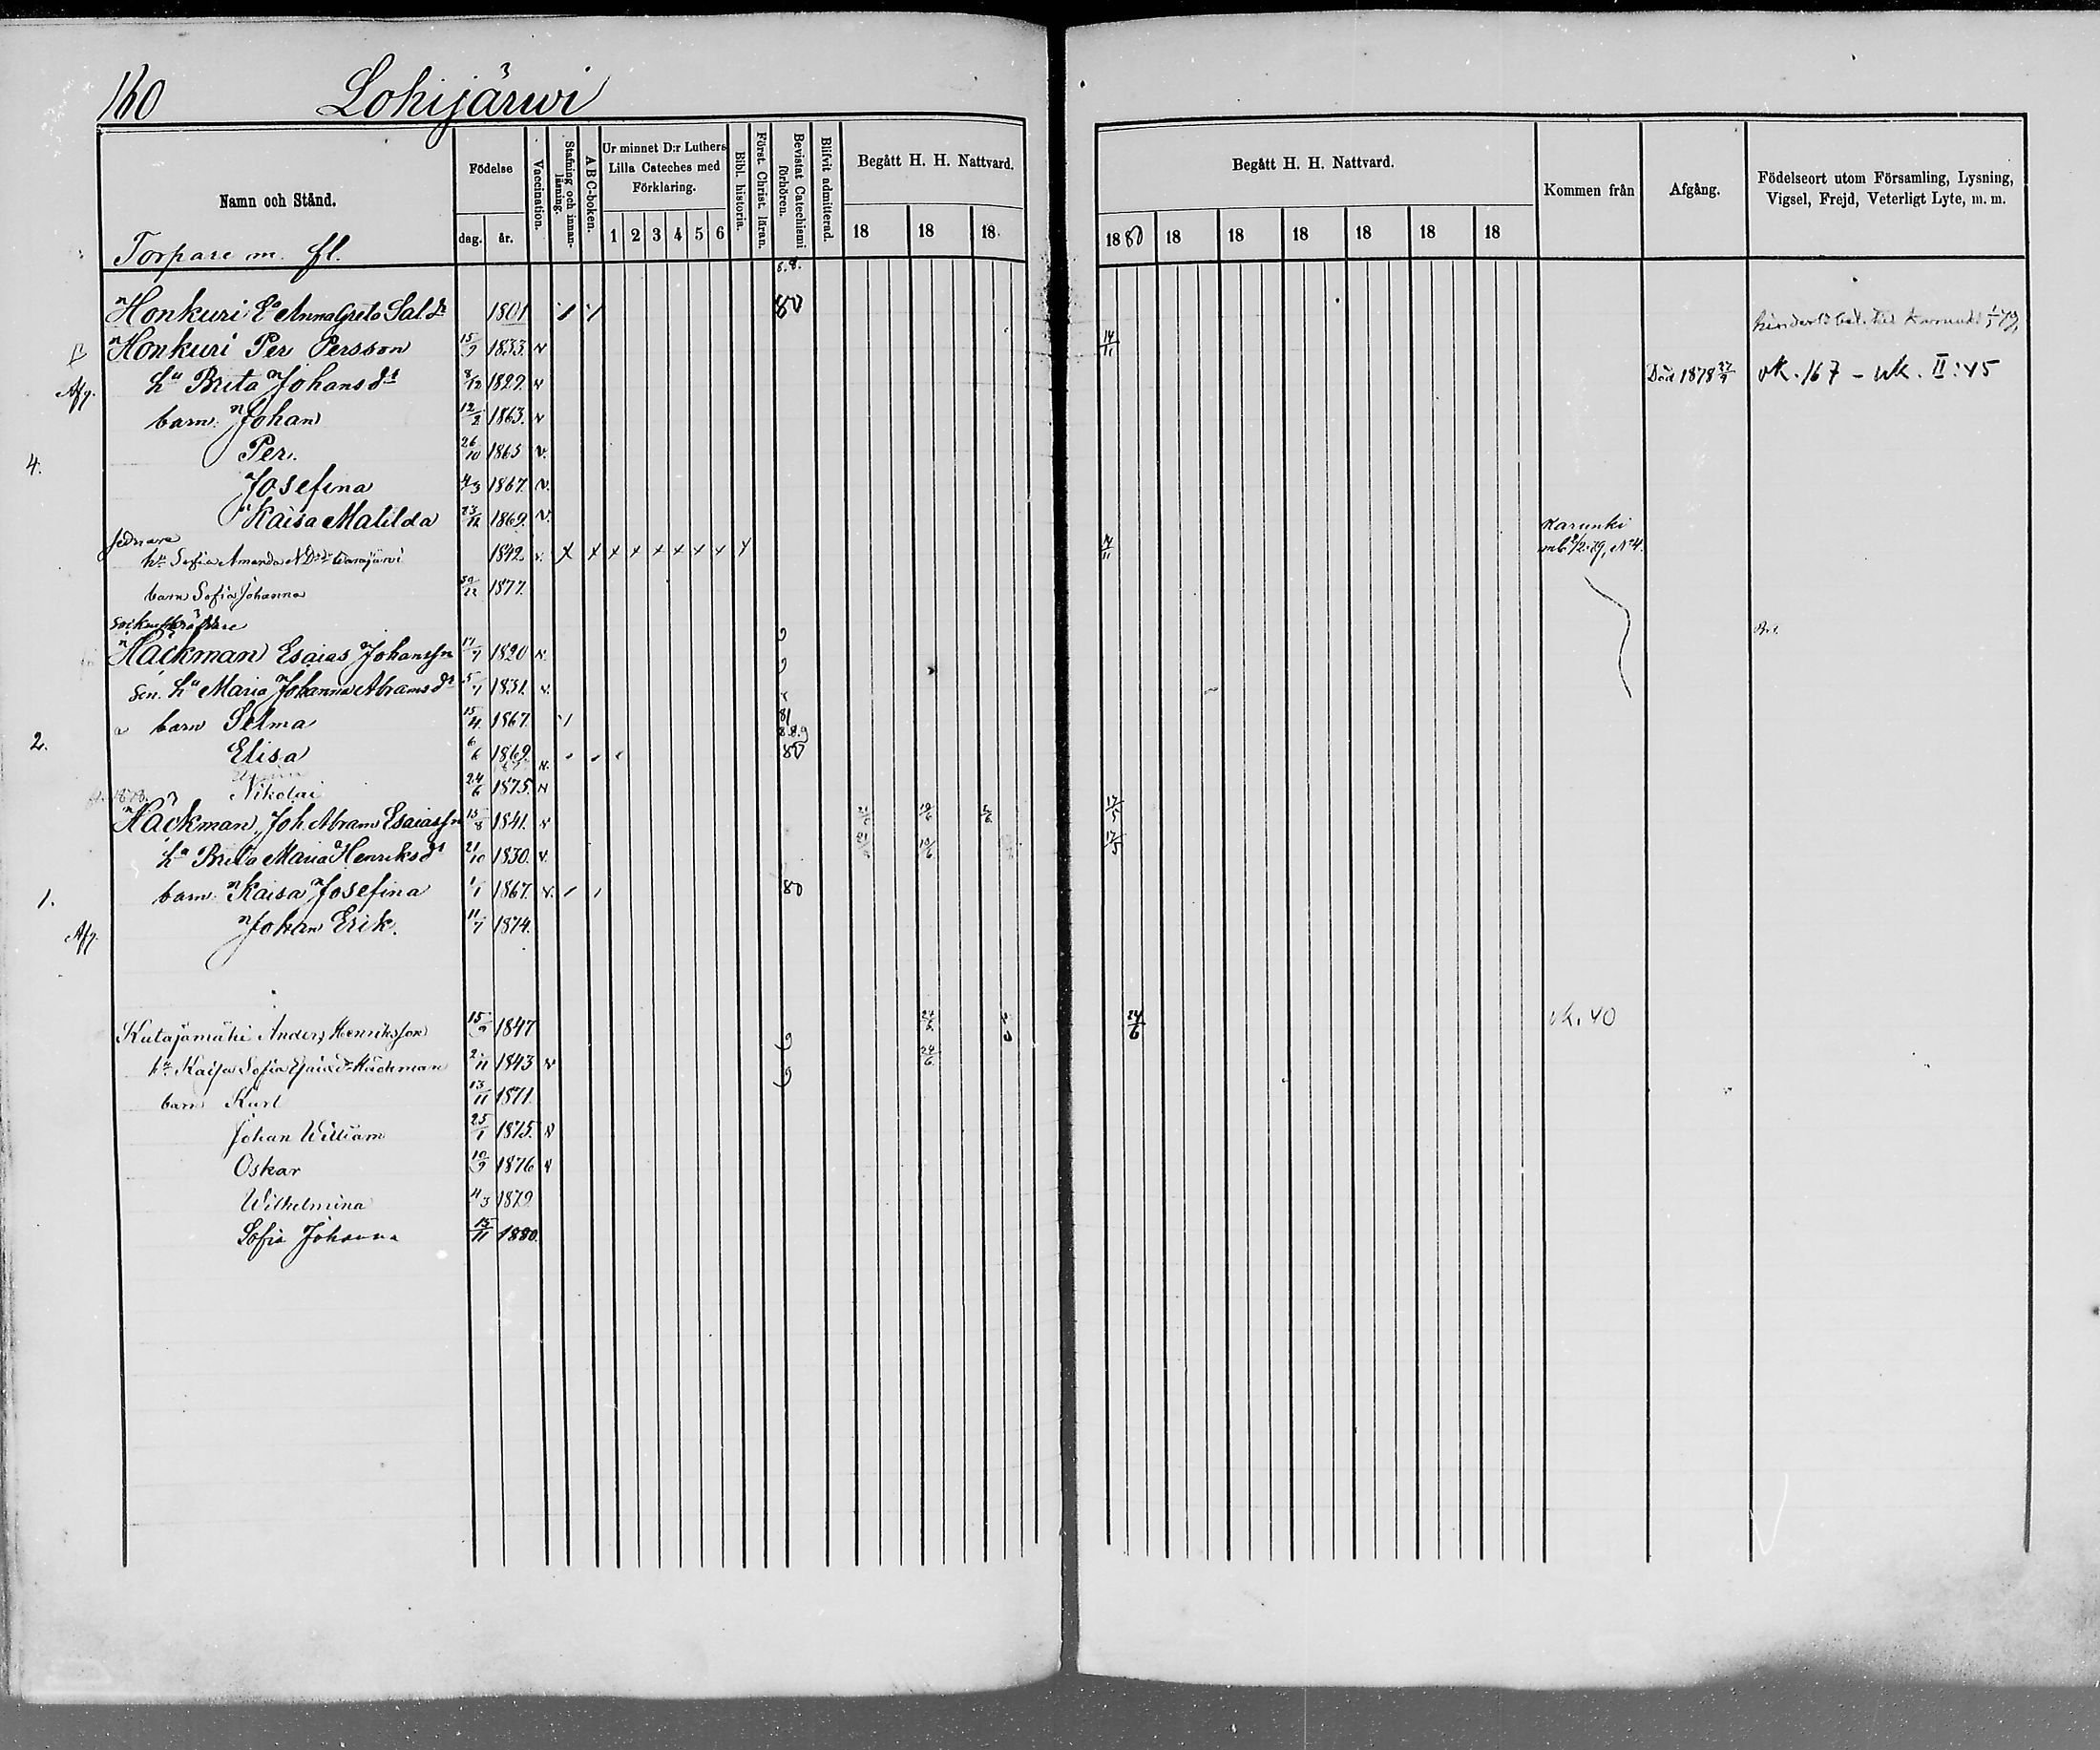 160 Lohijärwi
Namn och Stånd. Födelse dag. år. Vaccination. Stafning och innanläsning. A B C-boken. Ur minnet D:r Luthers Lilla Cateches med Förklaring. 1 2 3 4 5 6 Bibl. historia. Först. Christ. läran. Bevistat Catechismi förhören. Blifvit admitterad. Begått H. H. Nattvard. 18 18 18
Begått H. H. Nattvard. 1880 18 18 18 18 18 18 Kommen från Afgång. Födelseort utom Församling, Lysning, Vigsel, Frejd, Veterligt Lyte, m. m.
Torpare m. fl.
8.8.
Honkuri Ea Anna Greta Sal.dr 1801 80
Honkuri Per Persson 15/9 1833. v 14/11
Afg. hu Brita Johansdr 8/12 1829. v Död 1878 27/9 vk. 167 - wk. II:45
barn: Johan 12/2 1863. v
4. Per. 26/10 1865 v.
Josefina 4/3 1867. v.
Kaisa Matilda 23/12 1869. v.
sednare Karunki
hu Sofia Amanda 1842. v. x x x x x x x x x 14/11 mb. 2/2 79, No 4.
barn Sofia Johanna 1877.
Häckman Esaias Johanssn 17/7 1820 v.
sen. hu Maria Johanna Abramsdr 5/1 1831. v.
barn Selma 15/4 1867. 81
8.8.9
2. Elisa 6/6 1869. 80
Nikolai 24/6 1875. v
Häckman, Joh. Abram Esaiassn 15/8 1841. v 19/6 17/5
ha Brita Maria Henriksdr 21/10 1830. v. 19/6 17/5
1. barn: Kaisa Josefina 1/1 1867. v. 80
Afg. Johan Erik. 11/7 1874.
Kutajamäki Anders Henriksson 15/9 1847 24/6 24/6 vk. 40
hu Kaisa Sofia Esaiædr Häckman 2/11 1843 v 24/6
barn Karl 13/11 1871.
Johan William 25/1 1875. v
Oskar 10/9 1876 v
Wilhelmina 11/3 1879
Sofia Johanna 15/11 1880.